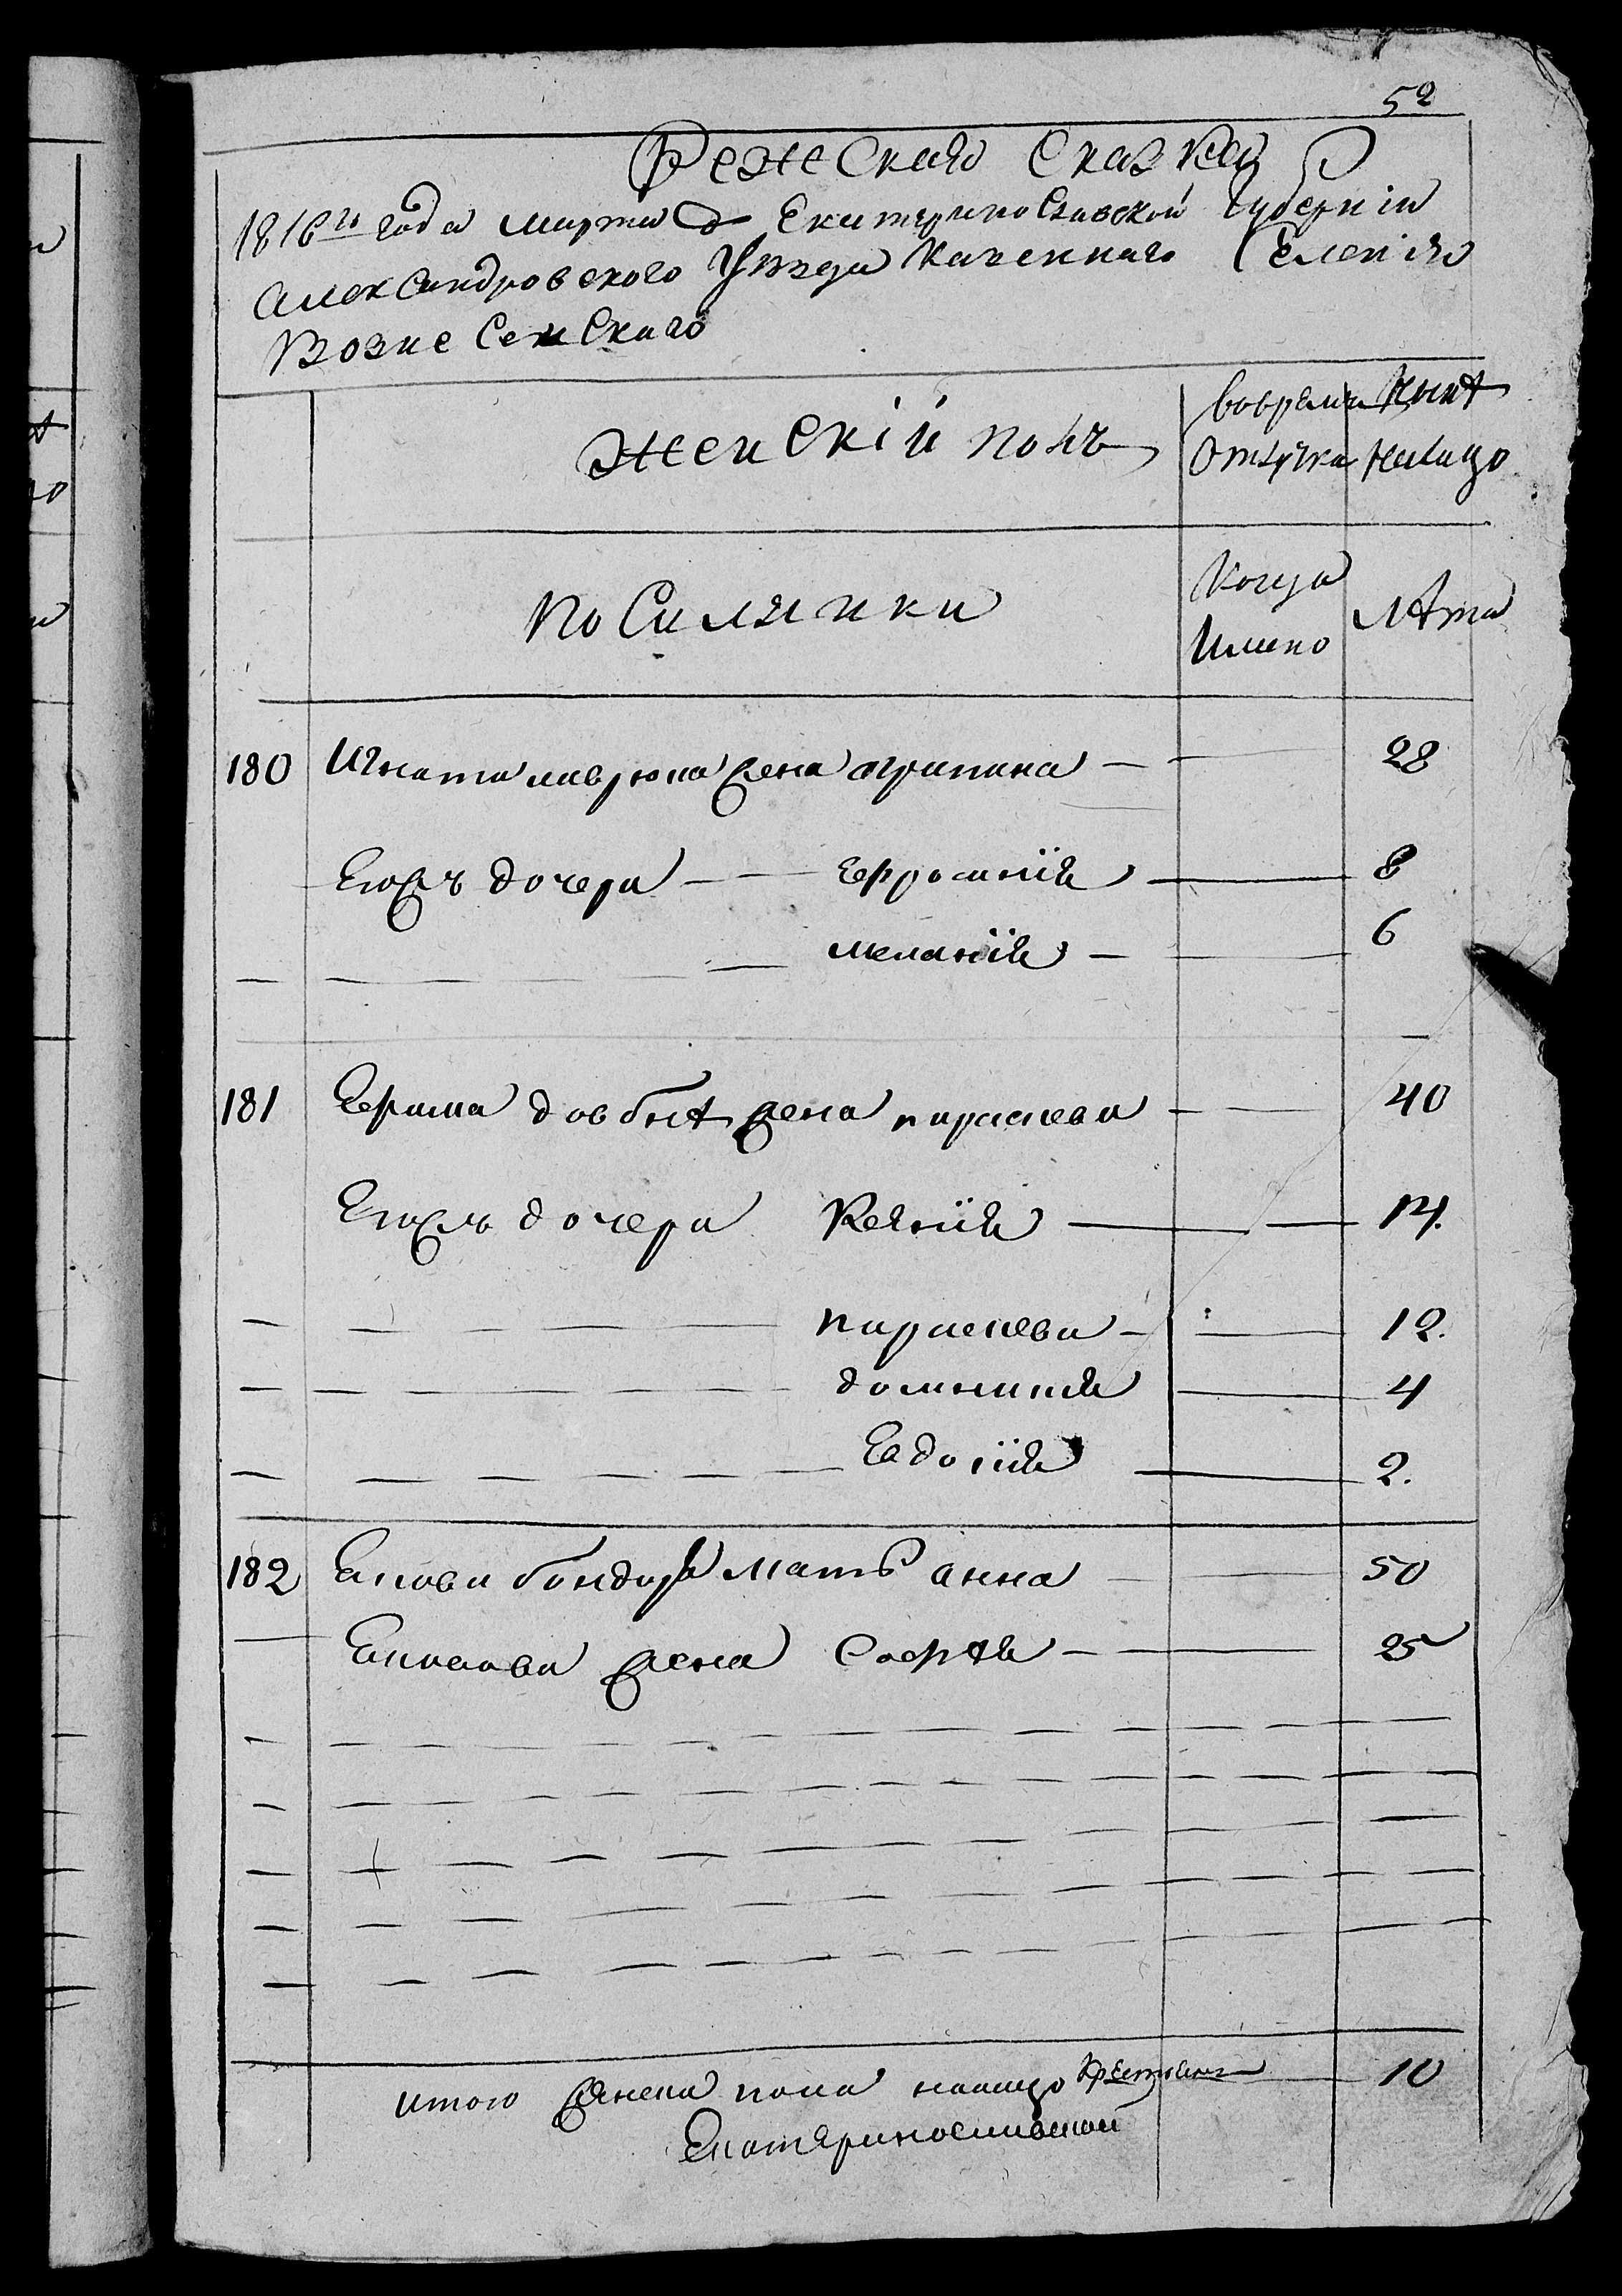 52
Режескаго Сказка
1816го года марта Екатеринославской Губерніи
александровского Уѣзда Казеннаго Селенія
Вознесенскаго
женскій полъ
вовремя
Отлучки
Нынѣ
налицо
поселянки
Когда
имено
лѣта
180 Игната лаврюка жена агрипина 28
Егожъ дочери ефросинія 8
меланія 6
181 довбнѣ жена параскева 40
Егожъ дочери Ксенія 14.
параскева 12.
домникия 4
Евдокія 2.
182 бондаря мать анна 50
жена Софія 25
итого женска пола налицо 10
Екатеринославской